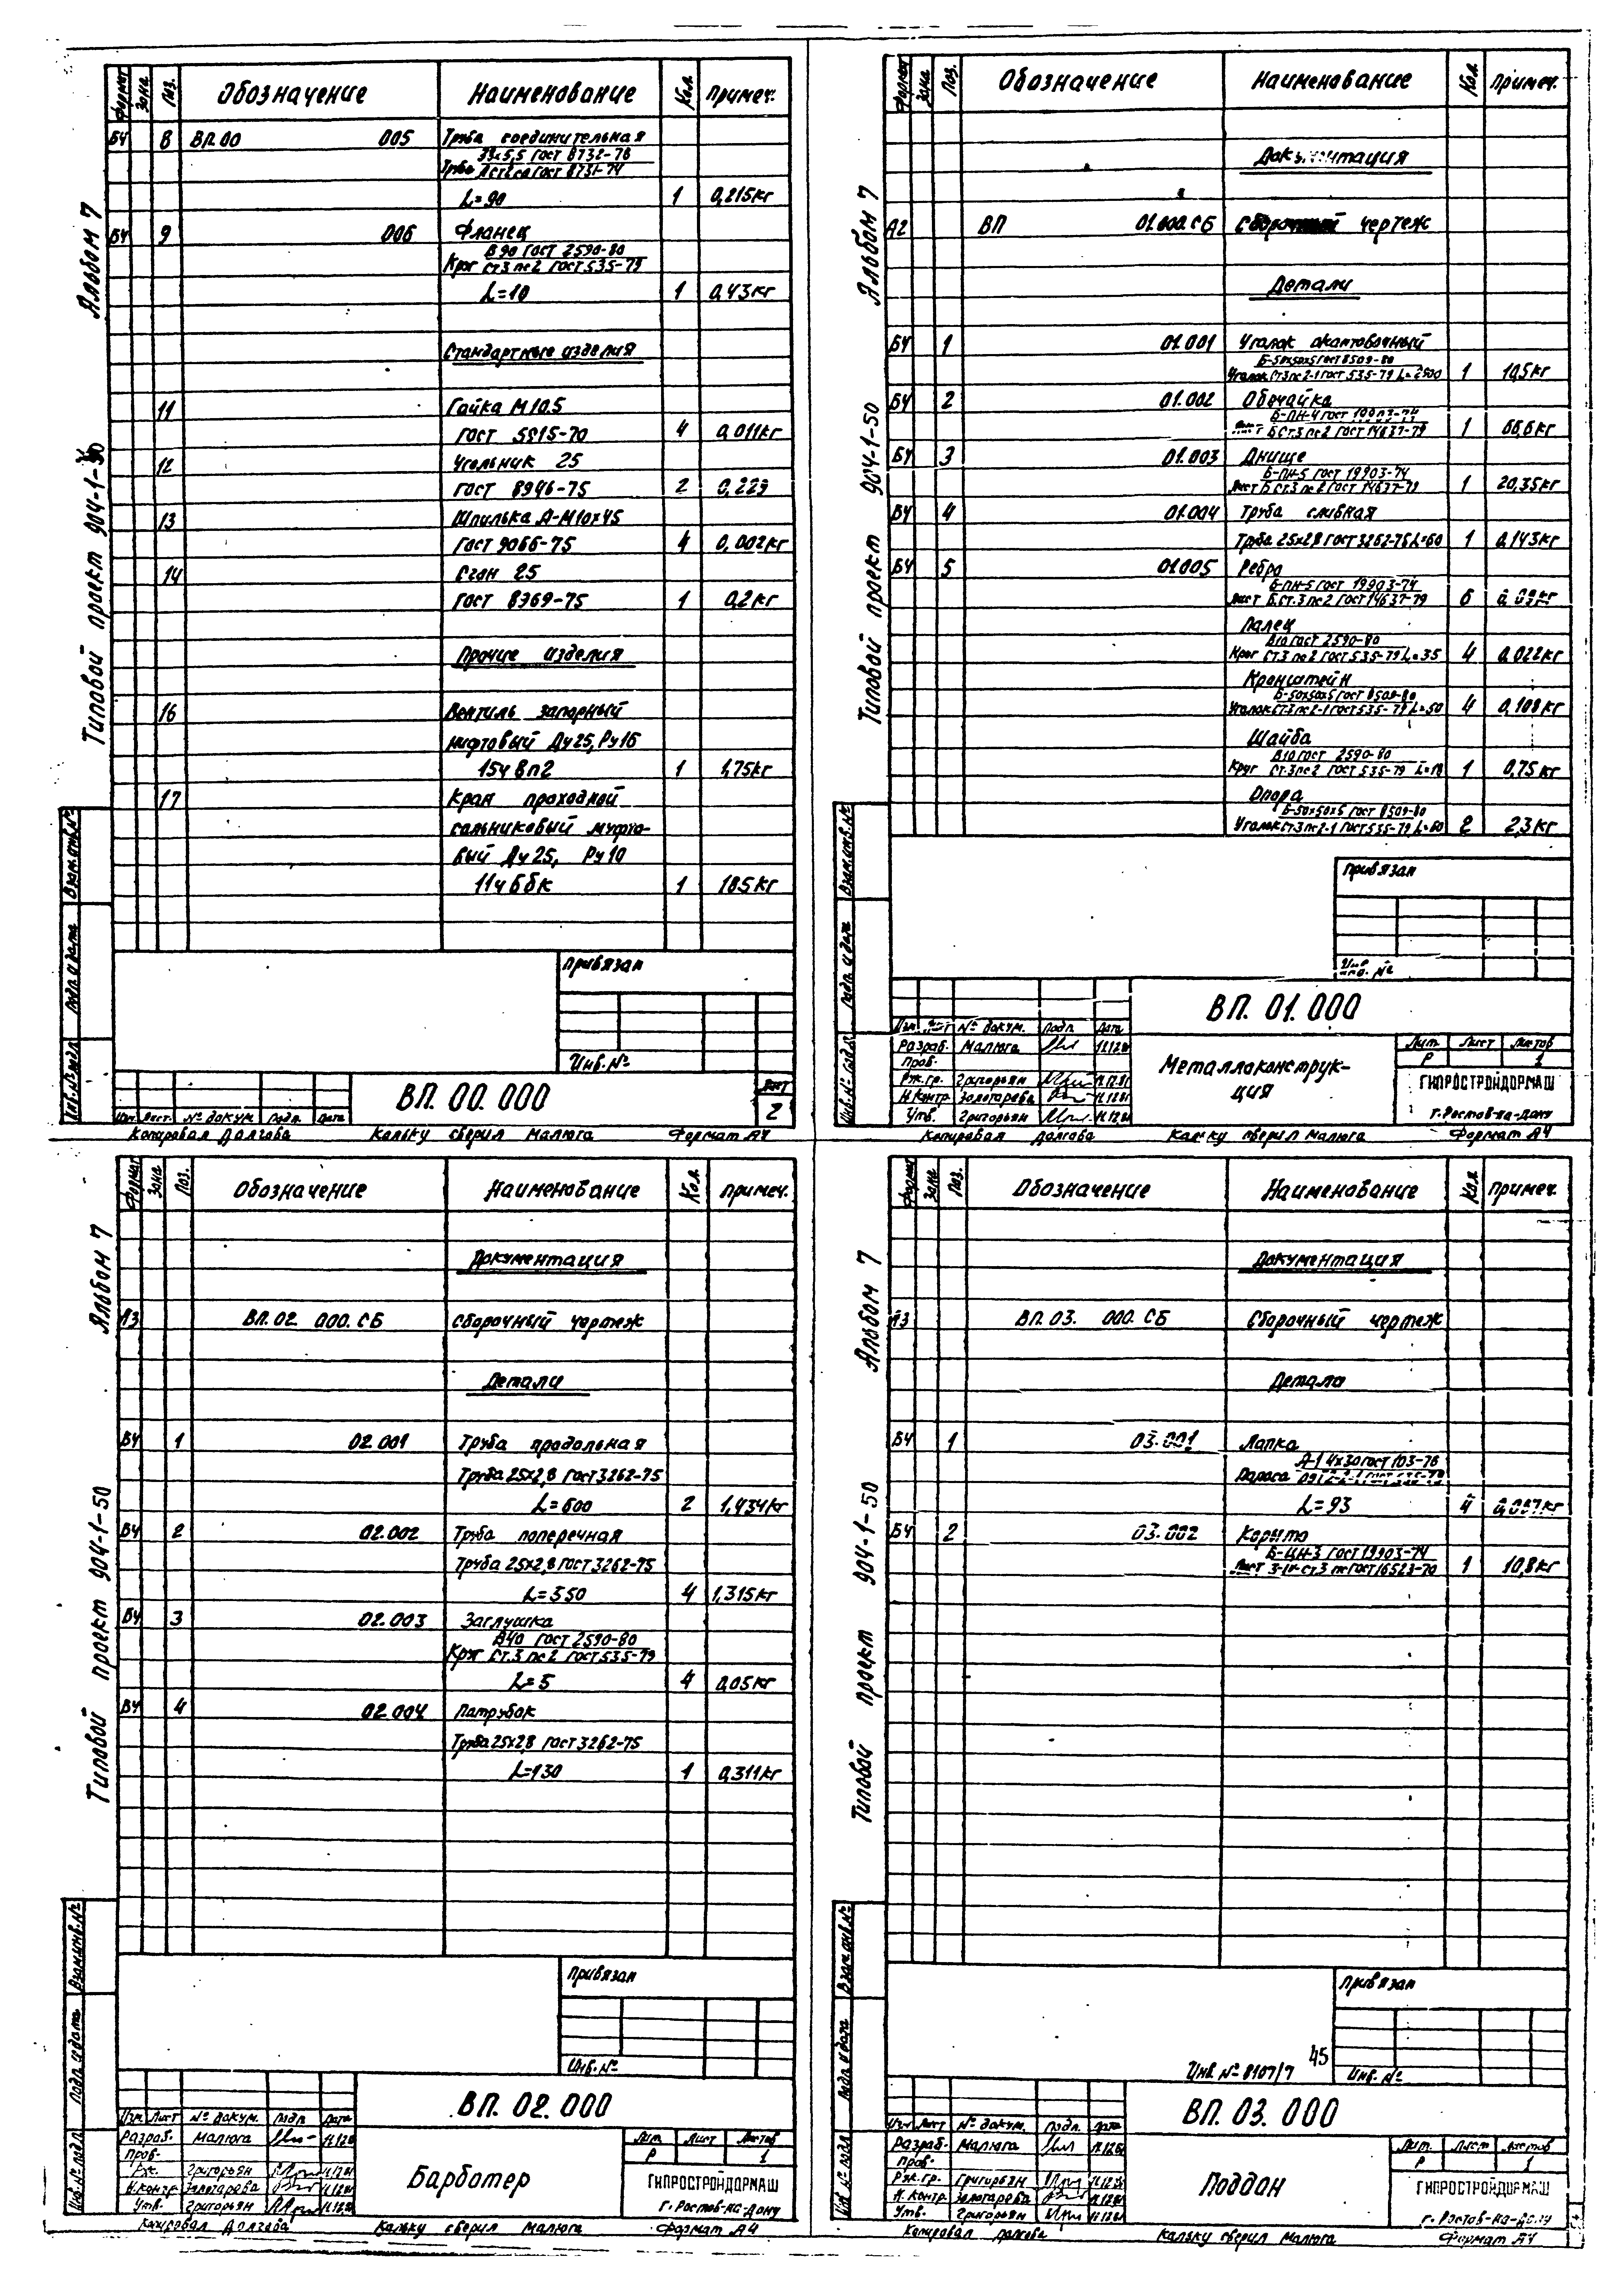 Альбом 7
Типовой проект 904-1-50
Формат Зона Поз. Обозначение Наименование Кол. Примеч.
БЧ 8 ВП.00 005 Труба соединительная
33х5,5 ГОСТ 8732-78
Труба ГОСТ 8731-74
L=90 1 0,215кг
БЧ 9 006 Фланец
В90 ГОСТ 2590-80
Круг Ст.3 пс2 ГОСТ 535-79
L=10 1 0,43кг
Стандартные изделия
11 Гайка М10.5
ГОСТ 5915-70 4 0,011кг
12 Угольник 25
ГОСТ 8946-75 2 0,229
13 Шпилька А-М10х45
ГОСТ 9066-75 4 0,002кг
14 Сгон 25
ГОСТ 8969-75 1 0,2кг
Прочие изделия
16 Вентиль запорный
муфтовый Ду25, Ру16
15ч8п2 1 1,75кг
17 Кран проходной
сальниковый муфто-
вый Ду25, Ру10
11ч6бк 1 1,85кг
Привязан
Инв.№
Взам.инв.№
Подп. и дата
Инв.№ подл
Изм. Лист. № докум. Подп. Дата
ВП. 00. 000
Лист
2
Копировал Долгова Кальку сверил Малюга Формат А4
Альбом 7
Типовой проект 904-1-50
Формат Зона Поз. Обозначение Наименование Кол. Примеч.
Документация
А2 ВП 01.000.СБ Сборочный чертеж
Детали
БЧ 1 01.001 Уголок окантовочный
Б-50х50х5 ГОСТ 8509-80
Уголок Ст3пс2-1 ГОСТ 535-79 L=2900 1 10,5кг
БЧ 2 01.002 Обечайка
Б-ПН-4 ГОСТ 19903-74
Лист БСт.3пс2 ГОСТ 14637-79 1 66,6кг
БЧ 3 01.003 Днище
Б-ПН-5 ГОСТ 19903-74
Лист БСт.3пс2 ГОСТ 14637-79 1 20,35кг
БЧ 4 01.004 Труба сливная
Труба 25х2,8 ГОСТ 3262-75 L=60 1 0,143кг
БЧ 5 01.005 Ребро
Б-ПН-5 ГОСТ 19903-74
Лист Б.Ст.3пс2 ГОСТ 14637-79 6 0,09кг
Палец
В10 ГОСТ 2590-80
Круг Ст.3пс2 ГОСТ 535-79 L=35 4 0,022кг
Кронштейн
Б-50х50х5 ГОСТ 8509-80
Уголок Ст3пс2-1 ГОСТ 535-79 L=50 4 0,108кг
Шайба
В10 ГОСТ 2590-80
Круг Ст.3пс2 ГОСТ 535-79 L=18 1 0,75кг
Опора
Б-50х50х5 ГОСТ 8509-80
Уголок Ст3пс2-1 ГОСТ 535-79 L=60 2 2,3кг
Привязан
Инв. №
Взам.инв.№
Подп. и дата
Инв.№ подл
ВП. 01. 000
Изм. Лист № докум. Подп. Дата
Разраб. Малюга 11.12.81
Пров.
Рук.гр. Григорьян 11.12.81
Н.контр Золотарева 11.12.81
Утв. Григорьян 11.12.81
Металлоконструк-
ция
Лит. Лист Листов
Р 1
ГИПРОСТРОЙДОРМАШ
г.Ростов-на-Дону
Копировал Долгова Кальку сверил Малюга Формат А4
Альбом 7
Типовой проект 904-1-50
Формат Зона Поз. Обозначение Наименование Кол. Примеч.
Документация
А3 ВП.02. 000.СБ Сборочный чертеж
Детали
БЧ 1 02.001 Труба продольная
Труба 25х2,8 ГОСТ 3262-75
L=600 2 1,434кг
БЧ 2 02.002 Труба поперечная
Труба 25х2,8 ГОСТ 3262-75
L=550 4 1,315кг
БЧ 3 02.003 Заглушка
В40 ГОСТ 2590-80
Круг Ст.3 пс2 ГОСТ 535-79
L=5 4 0,05кг
БЧ 4 02.004 Патрубок
Труба 25х2,8 ГОСТ 3262-75
L=130 1 0,311кг
Привязан
Инв.№
Взам.инв.№
Подп. и дата
Инв.№ подл.
ВП. 02. 000
Изм. Лист № докум. Подп. Дата
Разраб. Малюга 11.12.81
Пров.
Рук. Григорьян 11.12.81
Н.контр. Золотарева 11.12.81
Утв. Григорьян 11.12.81
Барботер
Лит. Лист Листов
Р 1
ГИПРОСТРОЙДОРМАШ
г.Ростов-на-Дону
Копировал Долгова Кальку сверил Малюга Формат А4
Альбом 7
Типовой проект 904-1-50
Формат Зона Поз. Обозначение Наименование Кол. Примеч.
Документация
А3 ВП.03. 000.СБ Сборочный чертеж
Детали
БЧ 1 03.001 Лапка
А-1 4х30 ГОСТ 103-76
Полоса
L=93 4 0,087кг
БЧ 2 03.002 Корыто
Б-ПН-3 ГОСТ 19903-74
Лист ГОСТ 16523-70 1 10,8кг
Привязан
45
Инв.№ 8107/7 Инв.№
Взам.инв.№
Подп. и дата
Инв.№ подл
ВП. 03. 000
Изм. Лист № докум. Подп. Дата
Разраб. Малюга 11.12.81
Пров.
Рук.гр. Григорьян 11.12.81
Н.контр. Золотарева 11.12.81
Утв. Григорьян 11.12.81
Поддон
Лит. Лист Листов
Р 1
ГИПРОСТРОЙДОРМАШ
г.Ростов-на-Дону
Копировал Долгова Кальку сверил Малюга Формат А4